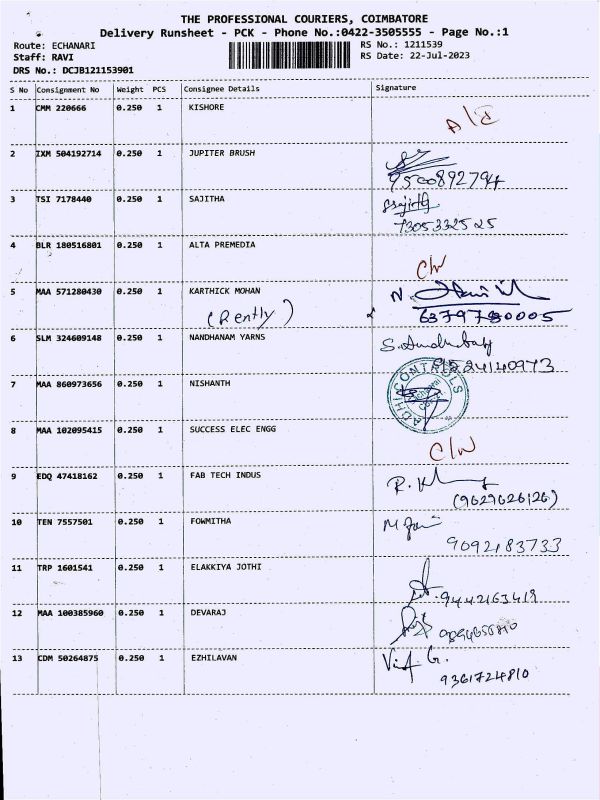 THE PROFESSIONAL COURIERS, COIMBATORE
Delivery Runsheet - PCK - Phone No.:0422-3505555 - Page No.:1
Route: ECHANARI RS No.: 1211539
Staff: RAVI RS Date: 22-Jul-2023
DRS No.: DCJB121153901
S No Consignment No Weight PCS Consignee Details Signature
1 CMM 220666 0.250 1 KISHORE
2 IXM 504192714 0.250 1 JUPITER BRUSH
9500892794
3 TSI 7178440 0.250 1 SAJITHA
Sajitha
7305332525
4 BLR 180516801 0.250 1 ALTA PREMEDIA
C/W
5 MAA 571280430 0.250 1 KARTHICK MOHAN
(Rently)
6 SLM 324609148 0.250 1 NANDHANAM YARNS
7 MAA 860973656 0.250 1 NISHANTH
ABHI CONTROLS
8 MAA 102095415 0.250 1 SUCCESS ELEC ENGG
C/W
9 EDQ 47418162 0.250 1 FAB TECH INDUS
(9629626126)
10 TEN 7557501 0.250 1 FOWMITHA
9092183733
11 TRP 1601541 0.250 1 ELAKKIYA JOTHI
9442163419
12 MAA 100385960 0.250 1 DEVARAJ
13 CDM 50264875 0.250 1 EZHILAVAN
9361724810